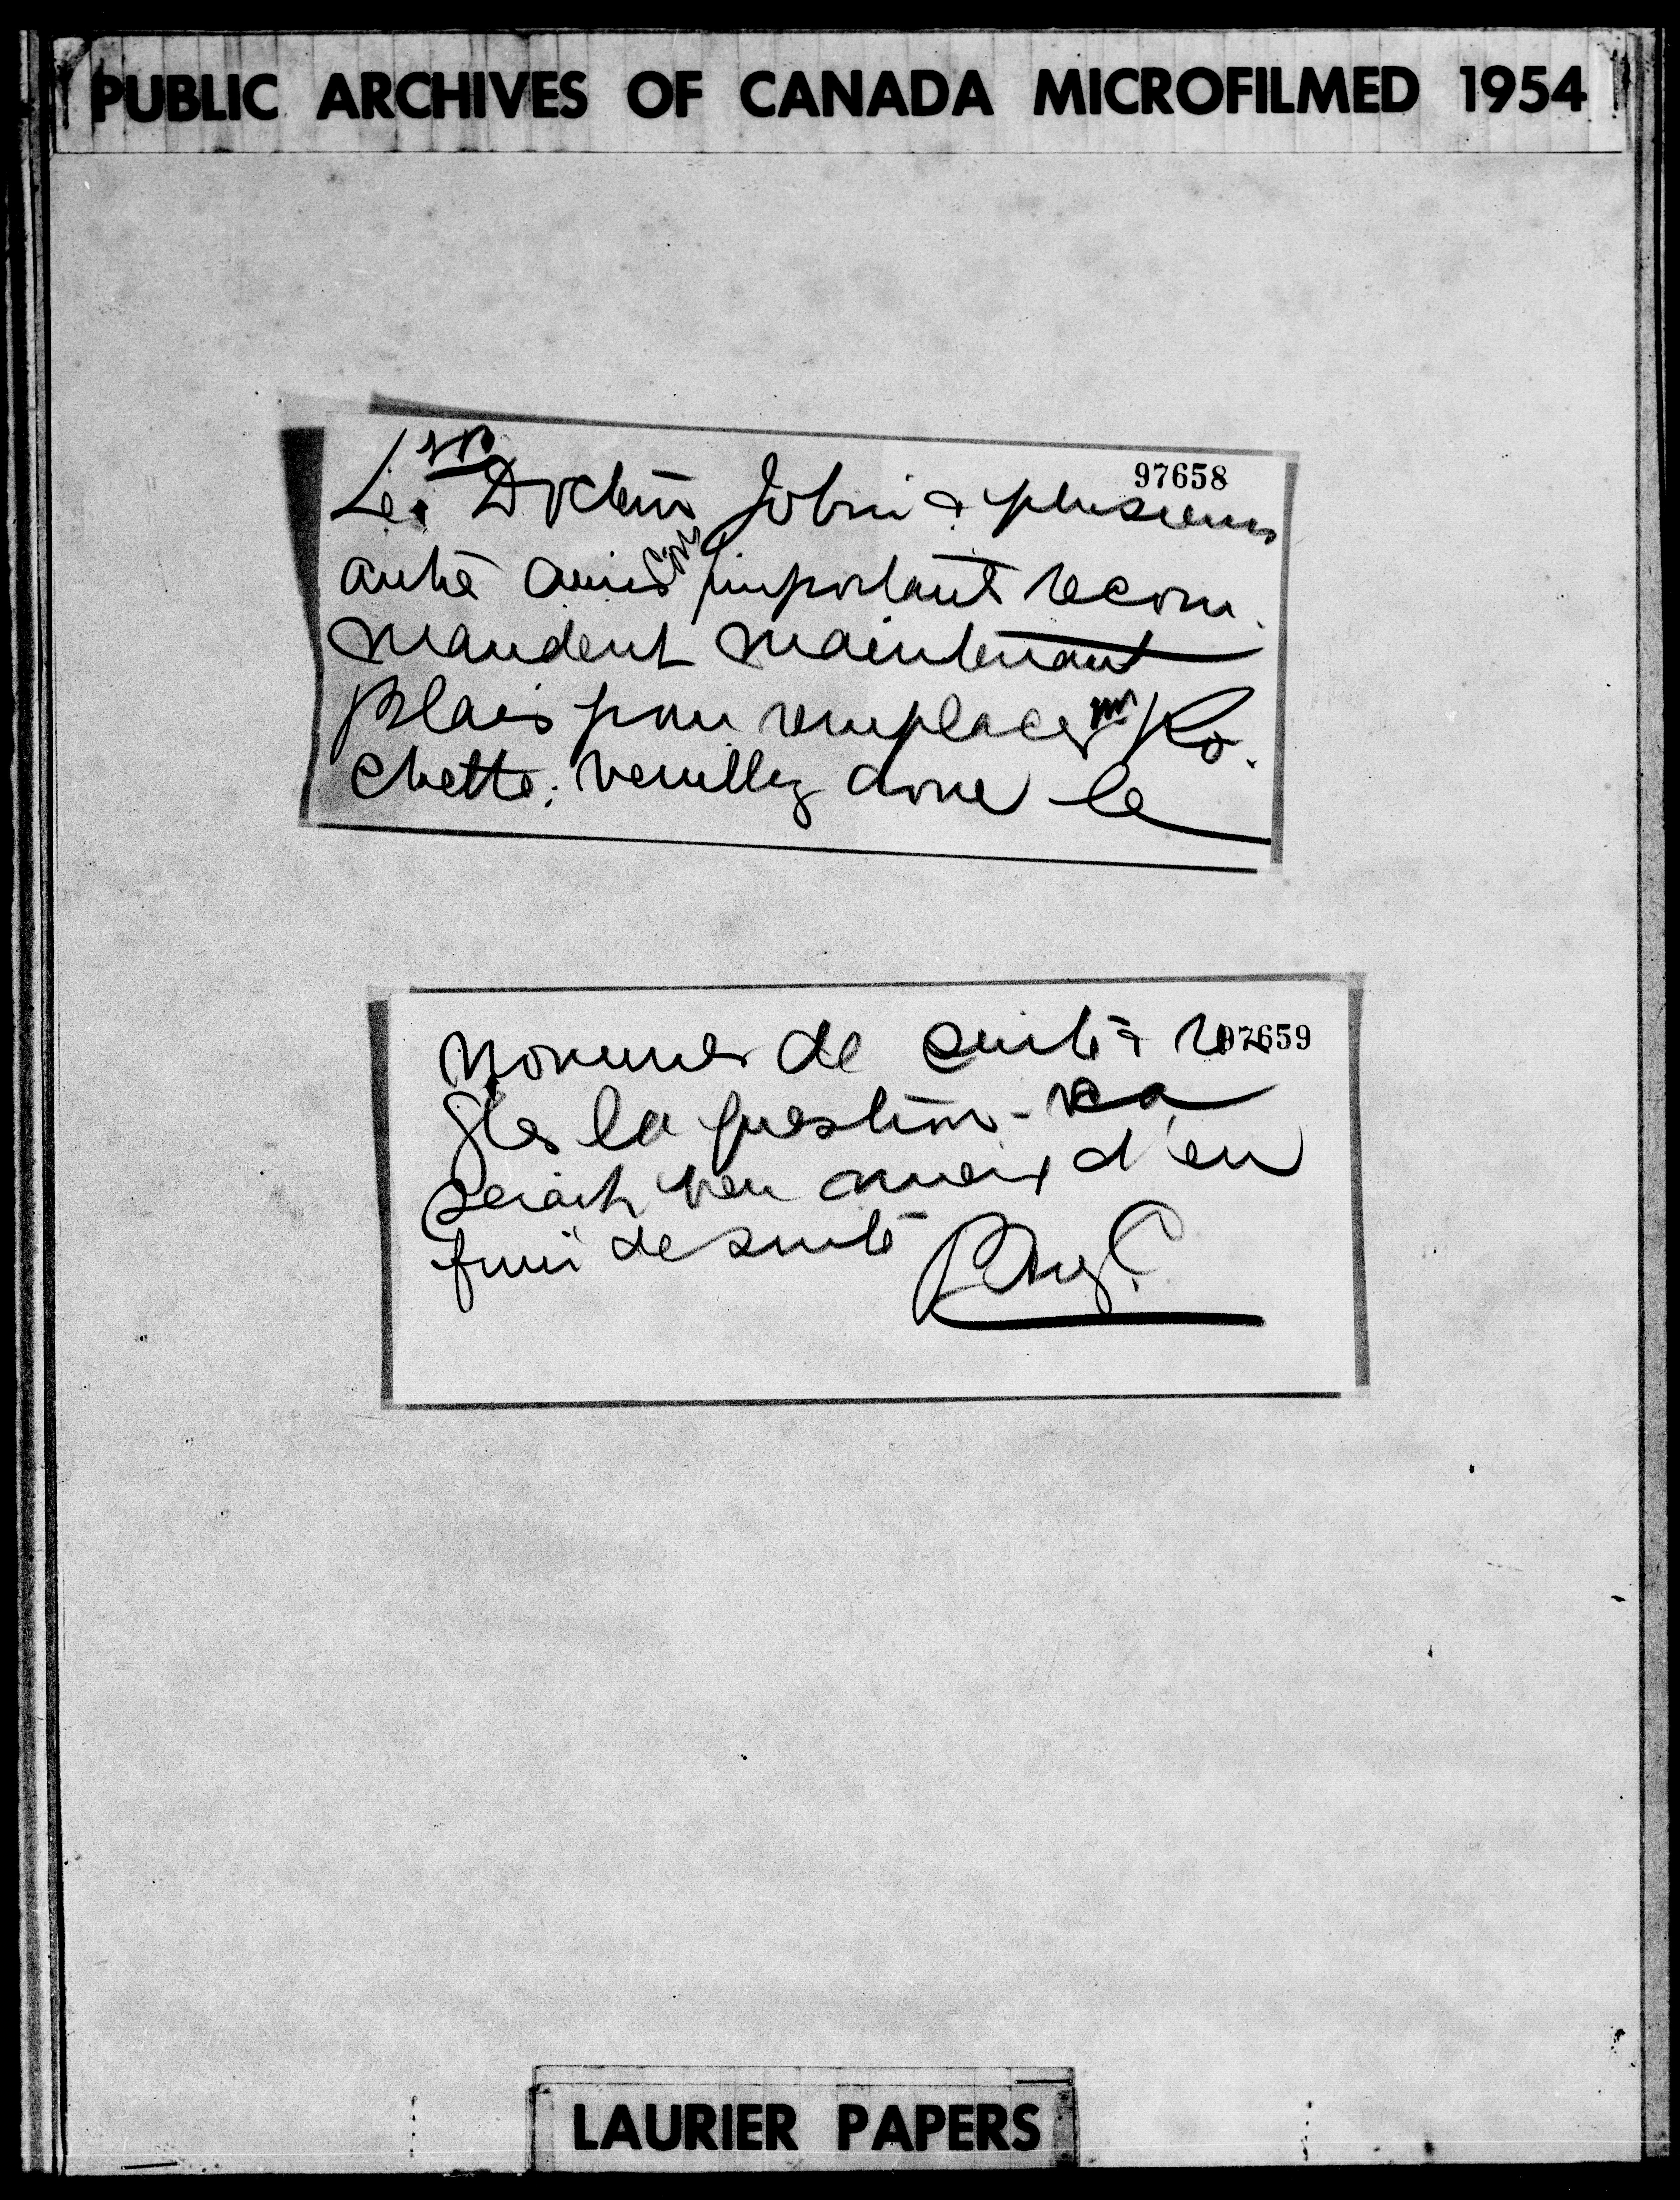 PUBLIC ARCHIVES OF CANADA MICROFILMED 1954
97658
Les Docteur Jobin & plusieurs
autre amis important recom-
mandent maintenant
Blais pour remplacer mr Ro-
chette: veuillez donc le
97659
nommer de suite &
gler la question -
serait mieux d'en
finir de suite
LAURIER PAPERS